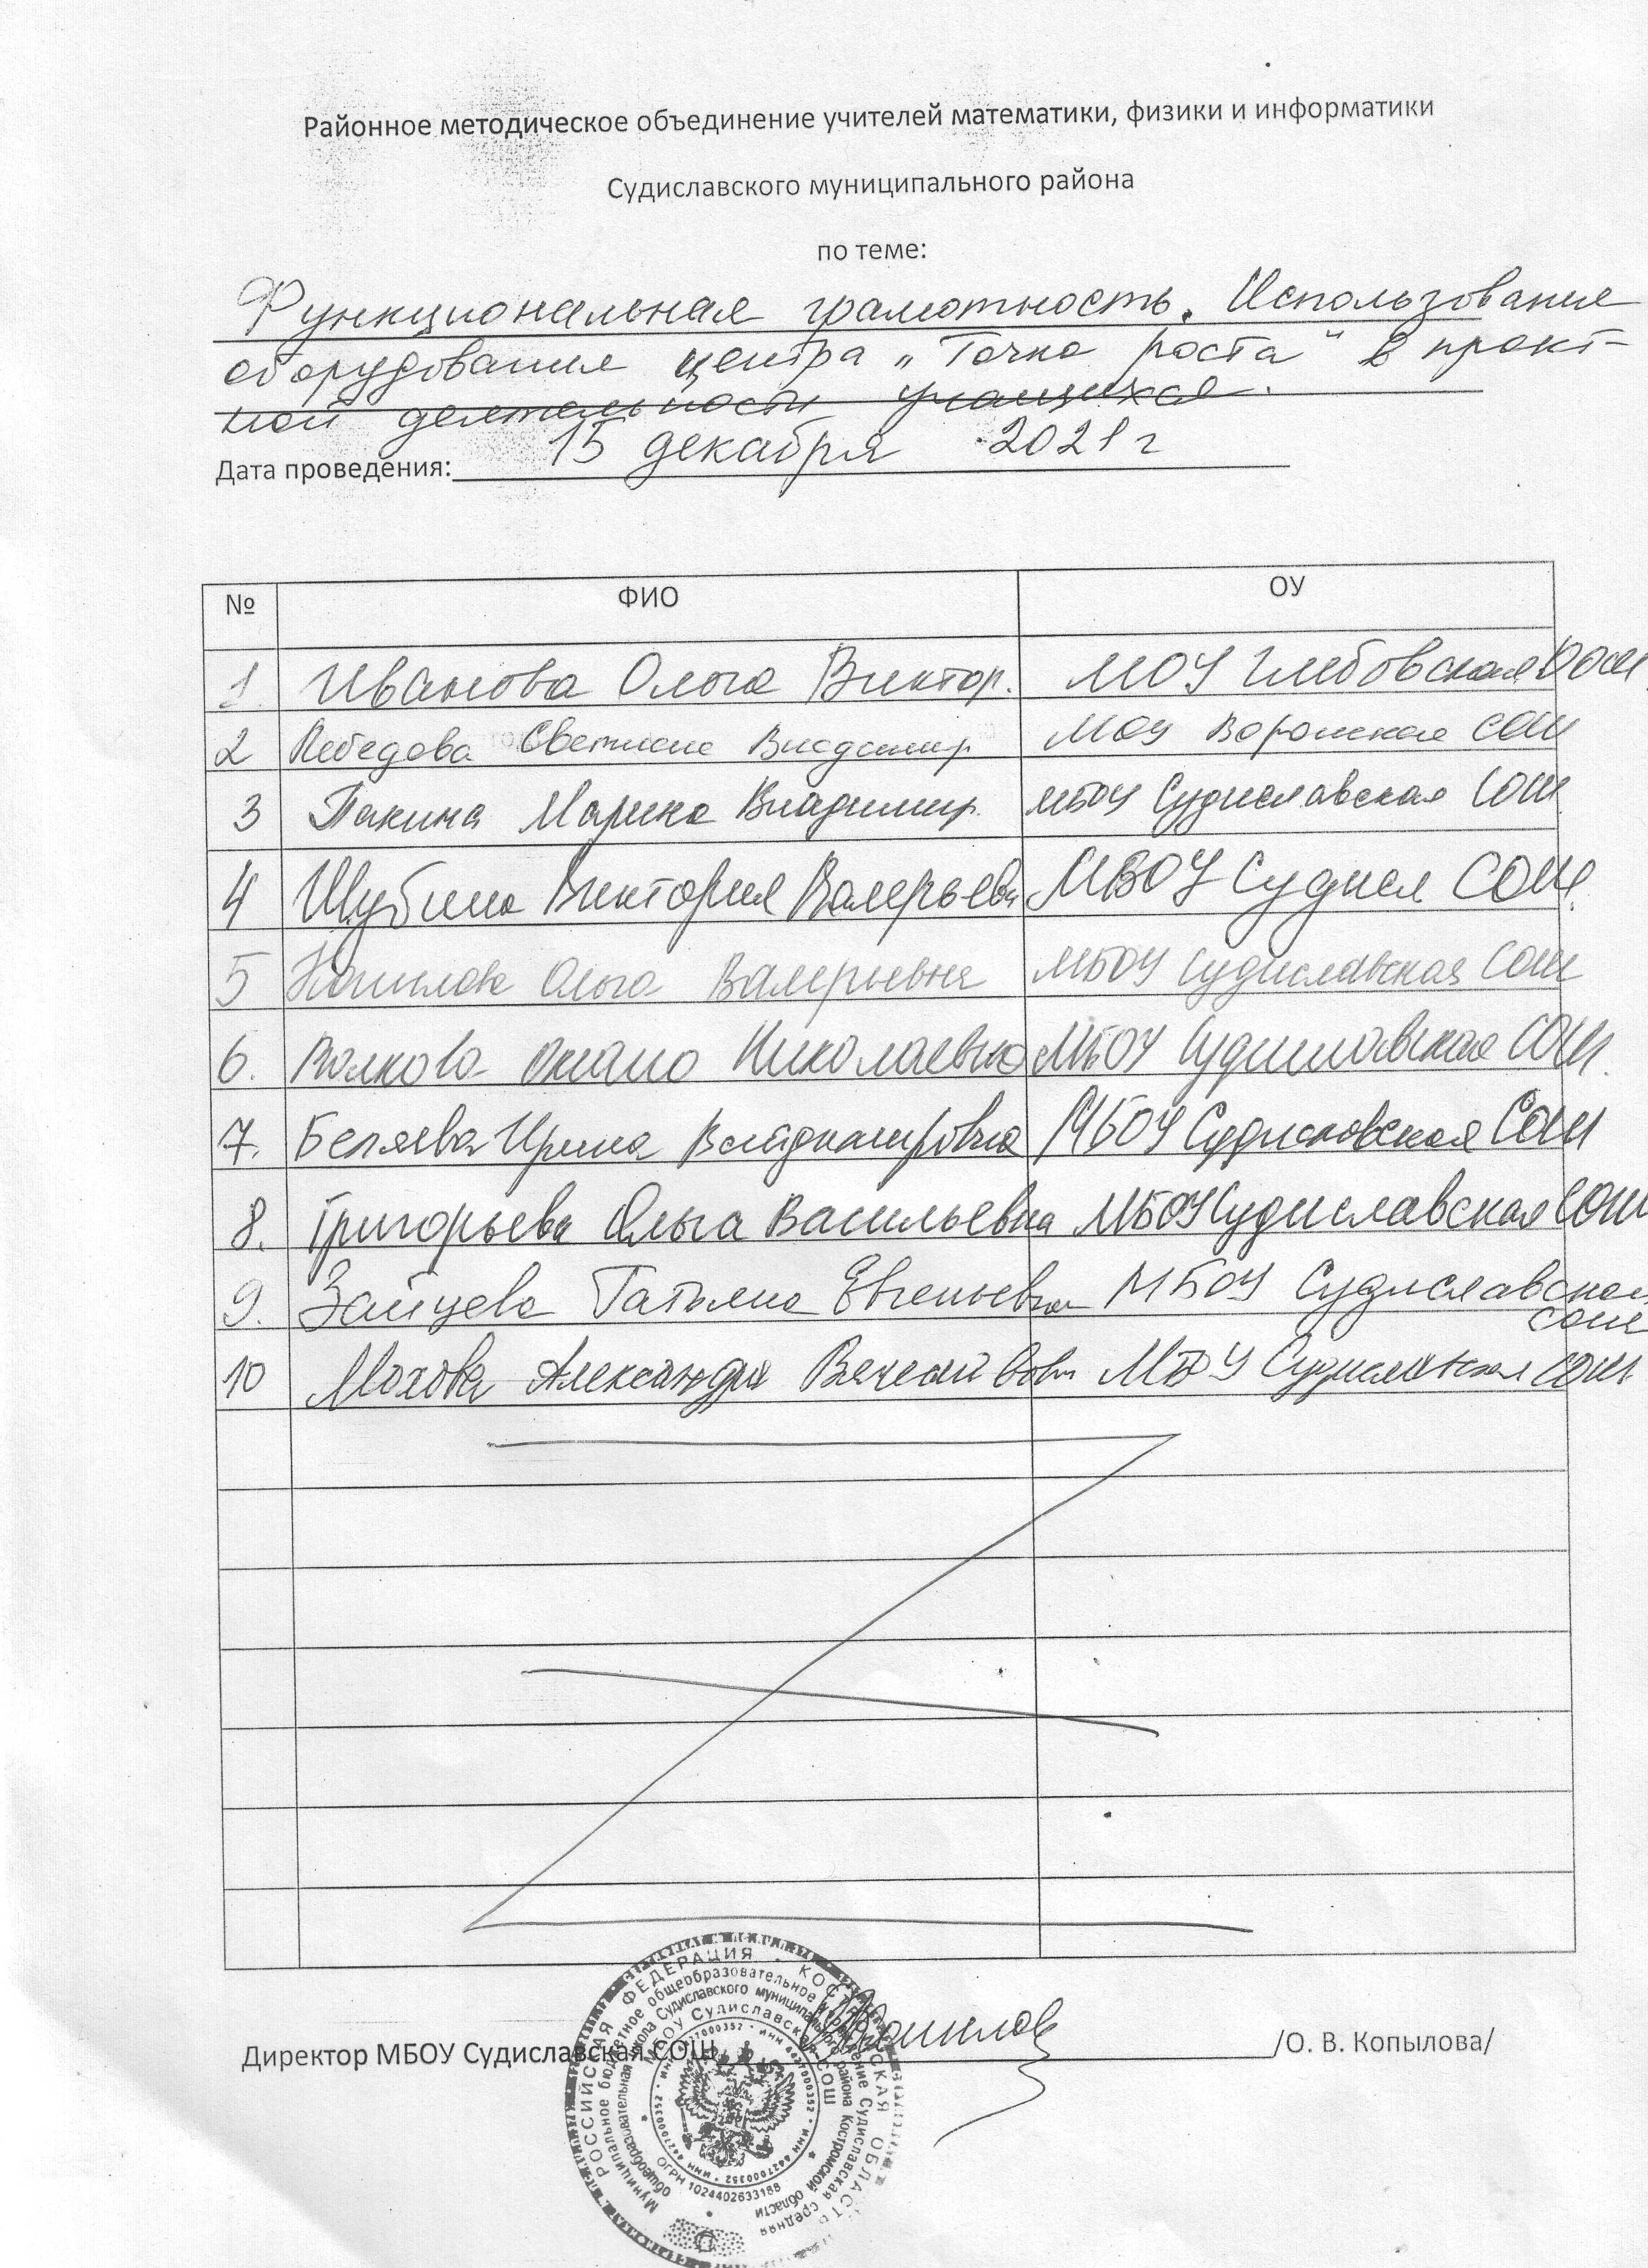 Районное методическое объединение учителей математики, физики и информатики
Судиславского муниципального района
по теме:
Функциональная грамотность. Использование
оборудования центра „Точка роста" в проект-
ной деятельности учащихся.
Дата проведения: 15 декабря 2021 г
№ ФИО ОУ
1 Иванова Ольга Виктор. МОУ Глебовская ООШ
2 Лебедева Светлана Владимир МОУ Воронская СОШ
3 Пакина Марина Владимир. МБОУ Судиславская СОШ
4 Шубина Виктория Валерьевн МБОУ Судисл СОШ.
5 Ольга Валерьевна МБОУ Судиславская СОШ
6. Волкова Оксана Николаевна МБОУ Судиславская СОШ.
7. Беляева Ирина Владимировна МБОУ Судиславская СОШ
8. Григорьева Ольга Васильевна МБОУ Судиславская СОШ
9. Зайцева Татьяна Евгеньевна МБОУ Судиславская
СОШ
10 Мохова Александра МБОУ Судиславская СОШ
Директор МБОУ Судиславская СОШ /О. В. Копылова/
РОССИЙСКАЯ ФЕДЕРАЦИЯ • КОСТРОМСКАЯ ОБЛАСТЬ
Муниципальное бюджетное общеобразовательное учреждение Судиславская средняя
общеобразовательная школа Судиславского муниципального района Костромской области
МБОУ Судиславская СОШ
ОГРН 1024402633188
ИНН 4427000352